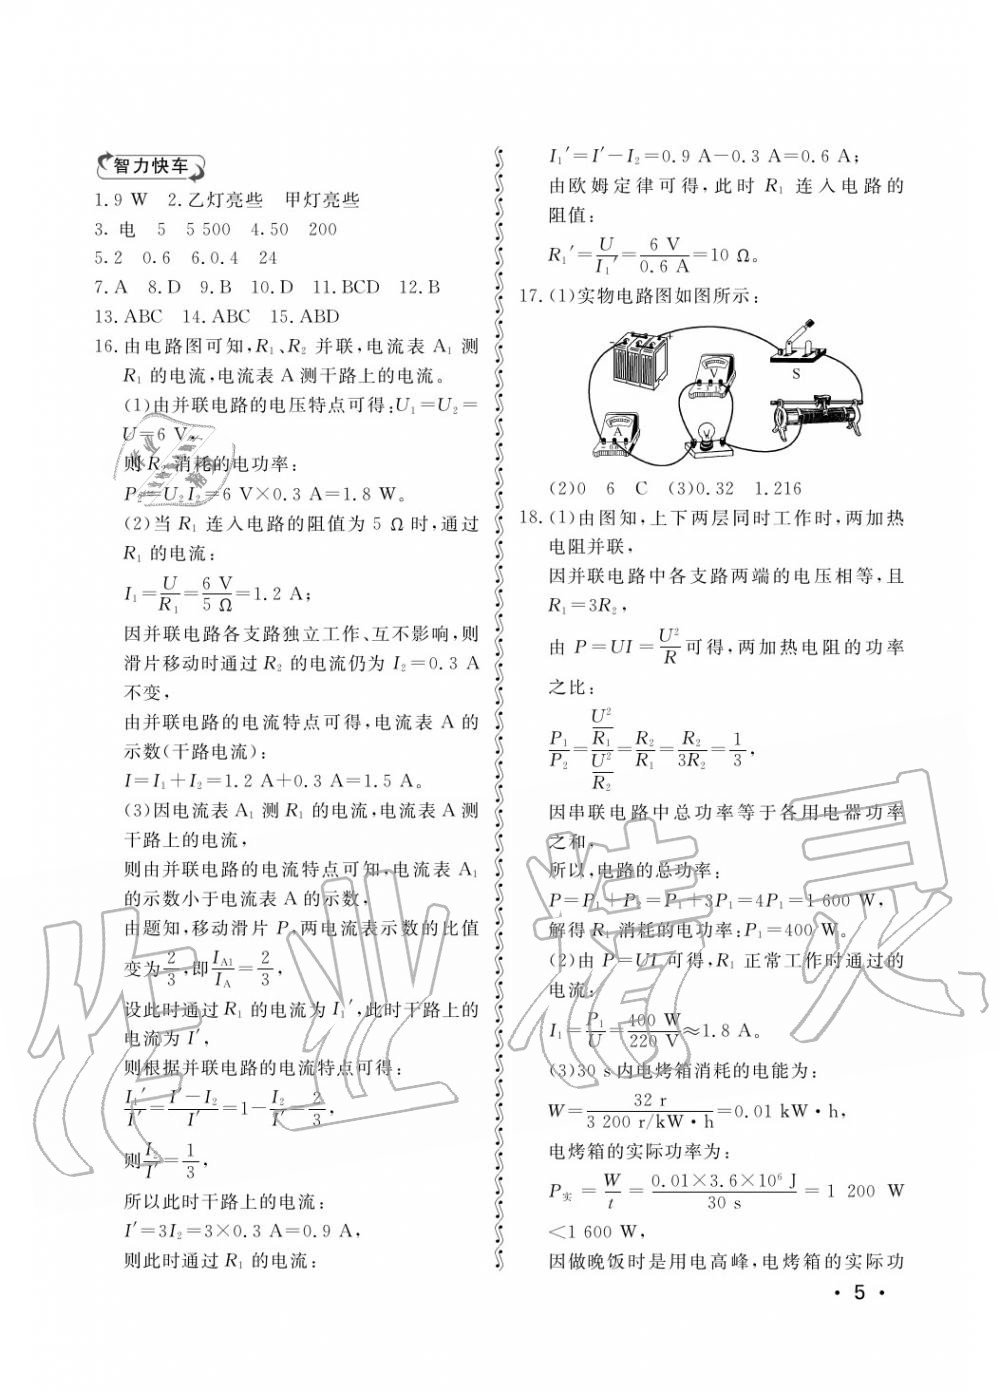 智力快车
1.9 W 2.乙灯亮些 甲灯亮些
3. 电 5 5 500 4.50 200
5.2 0.6 6.0.4 24
7.A 8.D 9.B 10.D 11.BCD 12.B
13.ABC 14.ABC 15.ABD
16.由电路图可知,R₁、R₂ 并联,电流表 A₁ 测
R₁ 的电流,电流表 A 测干路上的电流。
(1)由并联电路的电压特点可得:U₁=U₂=
U=6 V,
则 R₂ 消耗的电功率:
P₂=U₂I₂=6 V×0.3 A=1.8 W。
(2)当 R₁ 连入电路的阻值为 5 Ω 时,通过
R₁ 的电流:
I₁=U/R₁=6 V/5 Ω=1.2 A;
因并联电路各支路独立工作、互不影响,则
滑片移动时通过 R₂ 的电流仍为 I₂=0.3 A
不变,
由并联电路的电流特点可得,电流表 A 的
示数(干路电流):
I=I₁+I₂=1.2 A+0.3 A=1.5 A。
(3)因电流表 A₁ 测 R₁ 的电流,电流表 A 测
干路上的电流,
则由并联电路的电流特点可知,电流表 A₁
的示数小于电流表 A 的示数,
由题知,移动滑片 P,两电流表示数的比值
变为2/3,即I_A1/I_A=2/3,
设此时通过 R₁ 的电流为 I₁′,此时干路上的
电流为 I′,
则根据并联电路的电流特点可得:
I₁′/I′=(I′-I₂)/I′=1-I₂/I′=2/3,
则I₂/I′=1/3,
所以此时干路上的电流:
I′=3I₂=3×0.3 A=0.9 A,
则此时通过 R₁ 的电流:
I₁′=I′-I₂=0.9 A-0.3 A=0.6 A;
由欧姆定律可得,此时 R₁ 连入电路的
阻值:
R₁′=U/I₁′=6 V/0.6 A=10 Ω。
17.(1)实物电路图如图所示:
- +
V
S
A
(2)0 6 C (3)0.32 1.216
18.(1)由图知,上下两层同时工作时,两加热
电阻并联,
因并联电路中各支路两端的电压相等,且
R₁=3R₂,
由 P=UI=U²/R可得,两加热电阻的功率
之比:
P₁/P₂=(U²/R₁)/(U²/R₂)=R₂/R₁=R₂/3R₂=1/3,
因串联电路中总功率等于各用电器功率
之和,
所以,电路的总功率:
P=P₁+P₂=P₁+3P₁=4P₁=1 600 W,
解得 R₁ 消耗的电功率:P₁=400 W。
(2)由 P=UI 可得,R₁ 正常工作时通过的
电流:
I₁=P₁/U=400 W/220 V≈1.8 A。
(3)30 s内电烤箱消耗的电能为:
W=32 r/3 200 r/kW·h=0.01 kW·h,
电烤箱的实际功率为:
P实=W/t=0.01×3.6×10⁶ J/30 s=1 200 W
<1 600 W,
因做晚饭时是用电高峰,电烤箱的实际功
· 5 ·
作业精灵